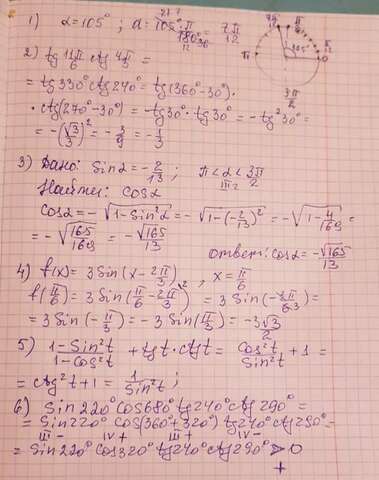 1) α=105° ; α = 105°·π/180° = 7π/12
2) tg 11π/6 ctg 4π/3 =
= tg330° ctg240° = tg(360°-30°)·
·ctg(270°-30°) = -tg30°·tg30° = -tg²30° =
= -(√3/3)² = -3/9 = -1/3
3) Дано: Sinα = -2/13 ; π<α<3π/2
III
Найти: cosα
cosα = -√(1-Sin²α) = -√(1-(-2/13)²) = -√(1-4/169) =
= -√(165/169) = -√165/13
ответ: cosα = -√165/13
4) f(x) = 3Sin(x-2π/3) , x = π/6
f(π/6) = 3Sin(π/6-2π/3) = 3Sin(-3π/6) =
= 3Sin(-π/3) = -3Sin(π/3) = -3√3/2
5) 1-Sin²t/1-Cos²t + tgt·ctgt = cos²t/Sin²t + 1 =
= ctg²t+1 = 1/Sin²t ;
6) Sin220° cos680° tg240° ctg290° =
= Sin220° cos(360°+320°) tg240° ctg290° =
III - IV + III + IV -
= Sin220° cos320° tg240° ctg290° > 0
+